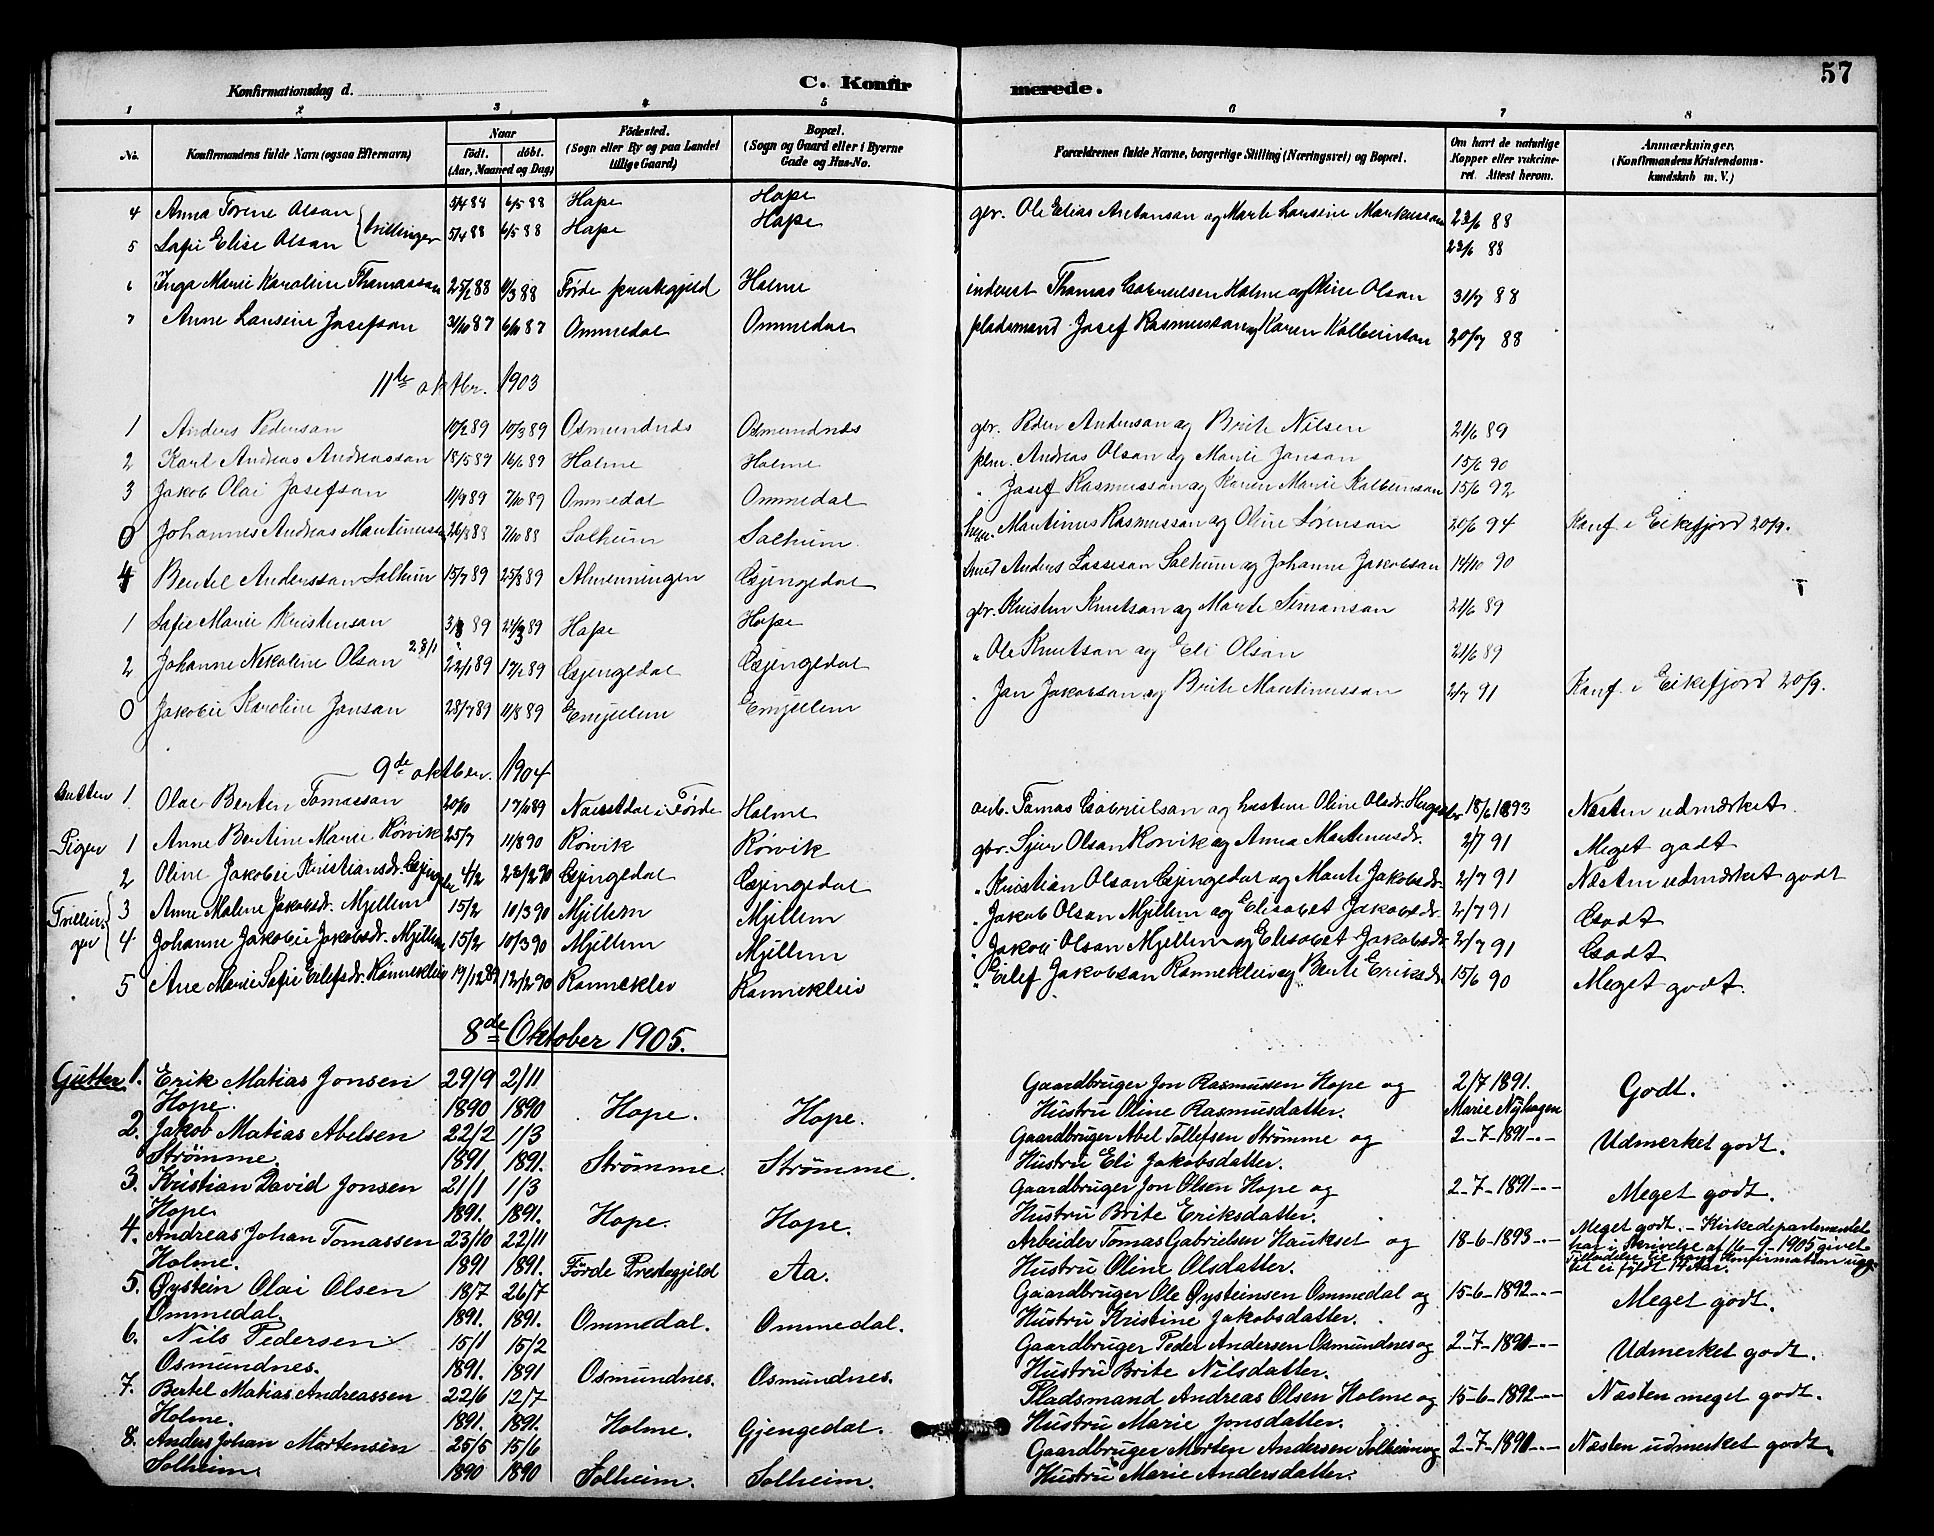 57
Konfirmationsdag d. C. Konfirmerede.
1 2 3 4 5 6 7 8
No. Konfirmandens fulde Navn (ogsaa Efternavn) Naar födt. döbt. (Aar, Maaned og Dag) Födested. (Sogn eller By og paa Landet tillige Gaard) Bopæl. (Sogn og Gaard eller i Byerne Gade og Hus-No. Forældrenes fulde Navne, borgerlige Stilling (Næringsvei) og Bopæl. Om havt de naturlige Kopper eller vakcineret. Attest herom. Anmærkninger. (Konfirmandens Kristendomskundskab m. V.)
4 Anna Torene Olsan 5/4 88 6/5 88 Hope Hope gbr. Ole Elias Antonsan og Marte Lausine Markussan 23/6 88
5 Sofie Elise Olsan tvillinger 5/4 88 6/5 88 Hope Hope 23/6 88
6 Inga Marie Karoline Thomassan 25/2 88 11/3 88 Førde prestegjeld Holme inderst Thomas Gabrielsen Holme og Oline Olson 31/7 88
7 Anne Lausine Josefson 87 87 Ommedal Ommedal pladsmand Josef Rasmussan og Karen Kolbeinson 20/7 88
11te oktbr. 1903
1 Anders Pedersan 10/2 89 10/3 89 Osmundnes Osmundnes gbr. Peder Andersan og Brite Nilsen 21/6 89
2 Karl Andreas Andreassan 18/5 89 16/6 89 Holme Holme plm. Andreas Olsan og Marie Jonsan 15/6 90
3 Jakob Olai Josefsan 11/9 89 7/10 89 Ommedal Ommedal " Josef Rasmussan og Karen Marie Kolbeinsan 15/6 92
0 Johannes Andreas Martinussen 26/8 88 7/10 88 Solheim Solheim. Martinus Rasmussan og Oline Sørensan 20/6 94 Konf. i Eikefjord 20/9.
4 Bertel Anderssan Solheim 15/7 89 25/8 89 Almenningen Gjengedal Smed Anders Lassesan Solheim og Johanne Jakobsan 14/10 90
1 Sofie Marie Kristensan 3/3 89 24/3 89 Hope Hope gbr. Kristen Knutsan og Marte Simonsan 21/6 89
2 Johanne Nikoline Olsan 28/1 22/1 89 17/2 89 Gjengedal Gjengedal " Ole Knutsan og Eli Olsan 21/6 89
0 Jakobie Karoline Jonsan 28/7 89 11/8 89 Emjellem Emjellem " Jon Jakobsan og Brite Martinussan 2/7 91 Konf. i Eikefjord 20/9.
9de oktber. 1904
Gutter 1 Olai Bertin Tomassan 20/10 17/11 89 Naustdal i Førde Holme arb. Tomas Gabrielsan og hustru Oline Olsdr. 18/6 1893 Næsten udmærket.
Piger 1 Anne Bertine Marie Rørvik 25/7 11/8 90 Rørvik Rørvik gbr. Sjur Olsan Rørvik og Anna Martinusdr. 2/7 91 Meget godt
2 Oline Jakobie Kristiansdr. Gjengedal 4/2 23/2 90 Gjengedal Gjengedal " Kristian Olsan Gjengedal og Marte Jakobsdr. 2/7 91 Næsten udmærket godt
Tvillinger 3 Anne Malene Jakobsdr. Mjellem 15/2 10/3 90 Mjellem Mjellem " Jakob Olsan Mjellem og Elisabet Jakobsdr. 2/7 91 Godt
4 Johanne Jakobie Jakobsdr. Mjellem 15/2 10/3 90 Mjellem Mjellem " Jakob Olsan Mjellem og Elisabet Jakobsdr. 2/7 91 Godt
5 Ane Marie Sofie Eilefsdr. Ramneklev 19/12 89 12/2 90 Ramneklev Ramneklev " Eilef Jakobsan Ramneklev og Berte Eriksdr. 15/6 90 Meget godt.
8de Oktober 1905.
Gutter 1. Erik Matias Jonsen 29/9 2/11 Gaardbruger Jon Rasmussen Hope og 2/7 1891.
Hope. 1890 1890 Hope. Hope. Hustru Oline Rasmusdatter. Marie Nyhagen Godt.
2. Jakob Matias Abelsen 22/2 1/3 Gaardbruger Abel Tollefsen Strømme og 2-7-1891-"-
Strømme. 1891 1891. Strømme. Strømme. Hustru Eli Jakobsdatter. Udmerket godt.
3. Kristian David Jonsen 21/1 1/3 Gaardbruger Jon Olsen Hope og 2-7-1891-"-
Hope. 1891. 1891. Hope. Hope. Hustru Brite Eriksdatter. Meget godt.
4. Andreas Johan Tomassen 23/10 22/11 Arbeider Tomas Gabrielsen Haukset og 18-6-1893-"- Meget godt. - Kirkedepartementet har i Skrivelse af 16-9-1905 givet Tilladelse til hans Konfirmation
Holme. 1891 1891. Førde Prestegjeld Aa. Hustru Oline Olsdatter.
5. Øystein Olai Olsen 18/7 26/7 Gaardbruger Ole Øysteinsen Ommedal og 15-6-1892-"-
Ommedal. 1891. 1891. Ommedal. Ommedal. Hustru Kristine Jakobsdatter. Meget godt.
6. Nils Pedersen 15/1 15/2 Gaardbruger Peder Andersen Osmundnes og 2-7-1891-"-
Osmundnes. 1891. 1891 Osmundnes. Osmundnes. Hustru Brite Nilsdatter. Udmerket godt.
7. Bertel Matias Andreassen 22/6 12/7 Pladsmand Andreas Olsen Holme og 15-6-1892-"- Næsten meget godt.
Holme. 1891. 1891. Holme. Gjengedal. Hustru Marie Jonsdatter.
8. Anders Johan Mortensen 25/5 15/6 Gaardbruger Morten Andersen Solheim og 2-7-1891-"- Næsten udmerket godt.
Solheim. 1890 1890 Solheim. Solheim. Hustru Marie Andersdatter.